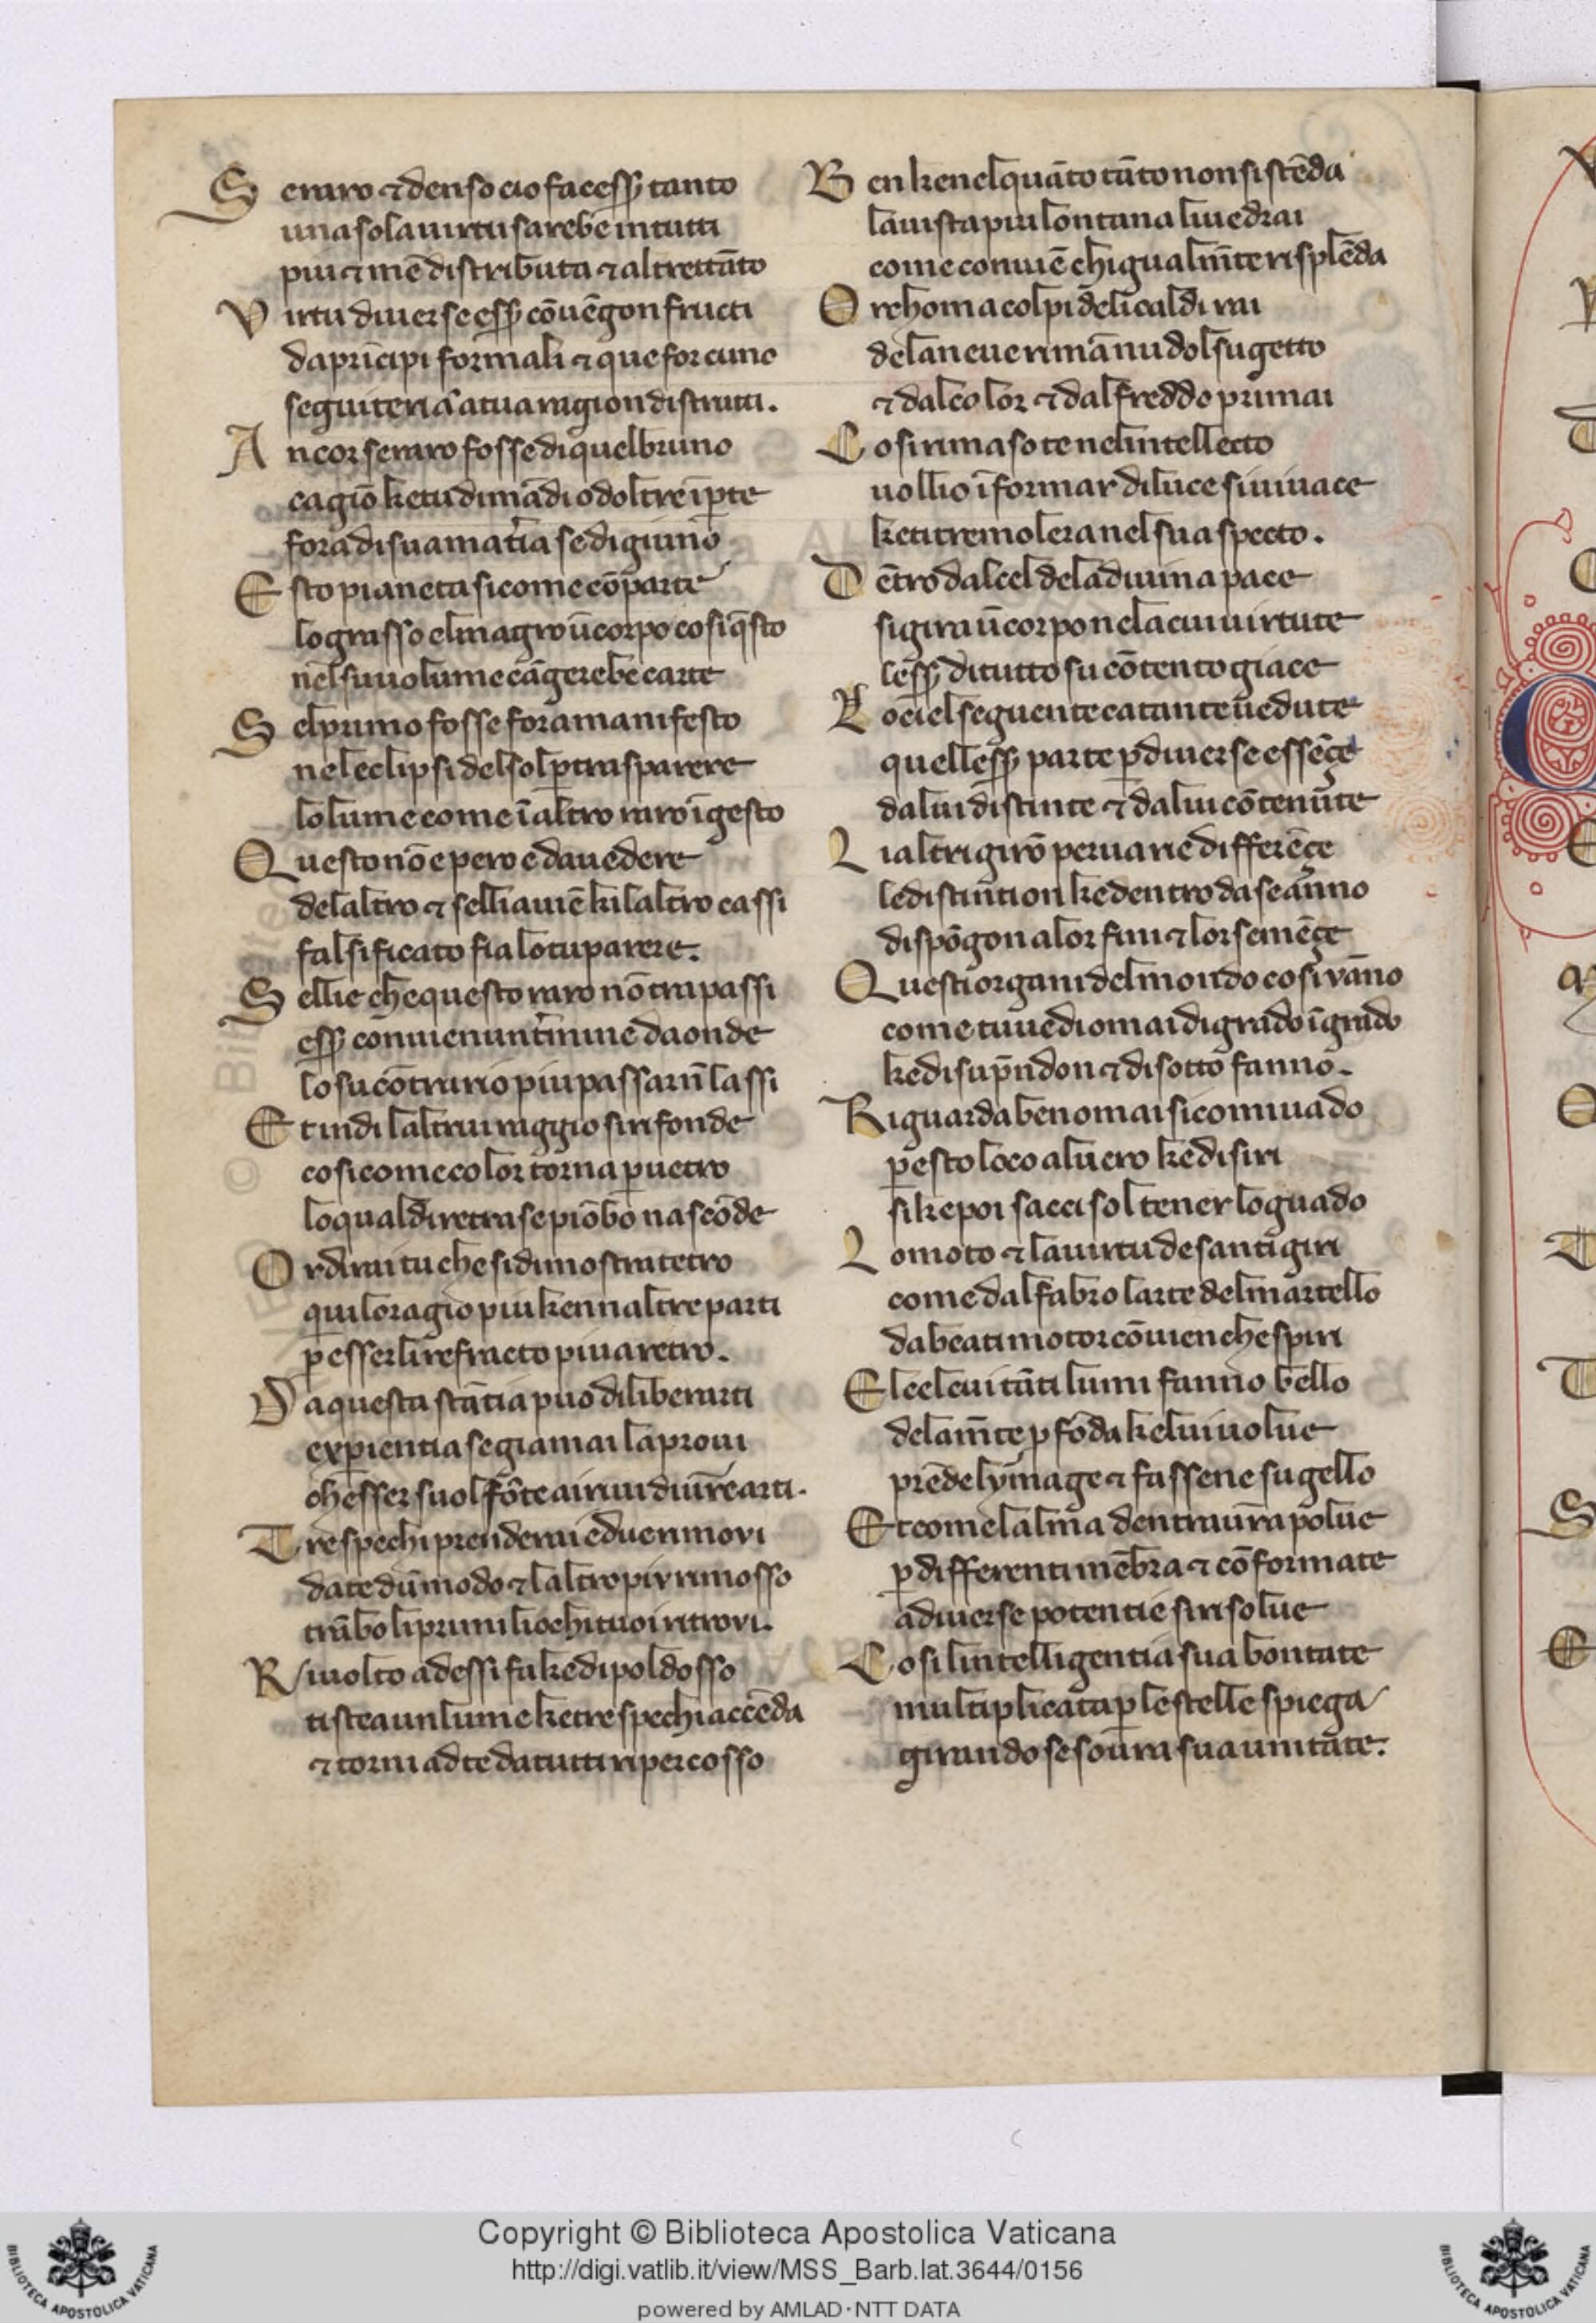 S e raro ⁊ denso cio facesꝫ tanto
una sola uirtu sarebe in tutti
piu ⁊ mē distributa ⁊ altrettāto
V irtu diuerse esꝫ cōuēgon fructi
da prīcipi formali ⁊ que for cuno
seguiteria a tua ragion distrutti.
A ncor se raro fosse di quel bruno
cagiō ke tu dimādi od oltre ī ꝑte
fora di sua mat͛ia se digiuno
E sto pianeta si come cōparte
lo grasso el magro ū corpo cosi q̄sto
nel suuolume cāgerebe carte
S el primo fosse fora manifesto
nel eclipsi del sol ꝑ trasparere
lo lume come ī altro raro īgesto
Q uesto nō e pero e da uedere
del altro ⁊ selli auiē kilaltro cassi
falsificato fia lo tu parere.
S elli e che questo raro nō trapassi
esꝫ conuien un t͛mine da onde
lo su cōtrario piu passar nō lassi
E t indi laltrui raggio si rifonde
cosi come color torna ꝑ uetro
lo qual diretra se piōbo nascōde
O r dirai tu che si dimostra tetro
quilo ragio piu ken naltre parti
ꝑ esser li refracto piu a retro.
D a questa stātia puo diliberarti
exꝑientia se gia mai la proui
chesser suol fōte ai riui di ur̄e arti.
T re spechi prenderai e due rimovi
da te dū modo ⁊ laltro piv rimosso
trābo li primi li ochi tuoi ritrovi.
R iuolto ad essi fa ke dipol dosso
ti stea un lume ke tre spechi accēda
⁊ torni ad te da tutti ripercosso
B en ke nel quāto tāto non si stēda
la uista piu lontana li uedrai
come conuiē chigualm̄te risplēda
O r choma colpi deli caldi rai
dela neue rimā nudol sugetto
⁊ dal color ⁊ dal freddo primai
C osi rimaso te nel intellecto
uollio īformar di luce si uiuace
ke ti tremolera nel su aspecto.
D ētro dal ciel dela diuina pace
si gira ū corpo nela cui uirtute
lesꝫ di tutto su cōtento giace
L o ciel seguente ca tante uedute
quellesꝫ parte ꝑ diuerse essēçe
da lui distinte ⁊ da lui cōtenute
L i altri girō per uarie differēçe
le distintion ke dentro da se āno
dispōgon a lor fini ⁊ lor semēçe
Q uesti organi del mondo cosi vāno
come tu uedi omai di grado ī grado
ke di su p̄ndon ⁊ di sotto fanno.
R iguarda ben omai si com iuado
ꝑ esto loco al uero ke disiri
si ke poi sacci sol tener lo guado
L o moto ⁊ la uirtu de santi giri
come dal fabro larte del martello
da beati motor cōuien che spiri
E l ciel cui tāti lumi fanno bello
de la m̄te ꝓfōda ke lui uolue
prēde lymage ⁊ fassene sugello
E t come lalma dentra ur̄a polue
ꝑ differenti mēbra ⁊ cōformate
a diuerse potentie si risolue
C osi lintelligentia sua bontate
multiplicata ꝑ le stelle spiega
girando se soura sua unitate.
Copyright © Biblioteca Apostolica Vaticana
http://digi.vatlib.it/view/MSS_Barb.lat.3644/0156
powered by AMLAD·NTT DATA
BIBLIOTECA APOSTOLICA VATICANA
BIBLIOTECA APOSTOLICA VATICANA